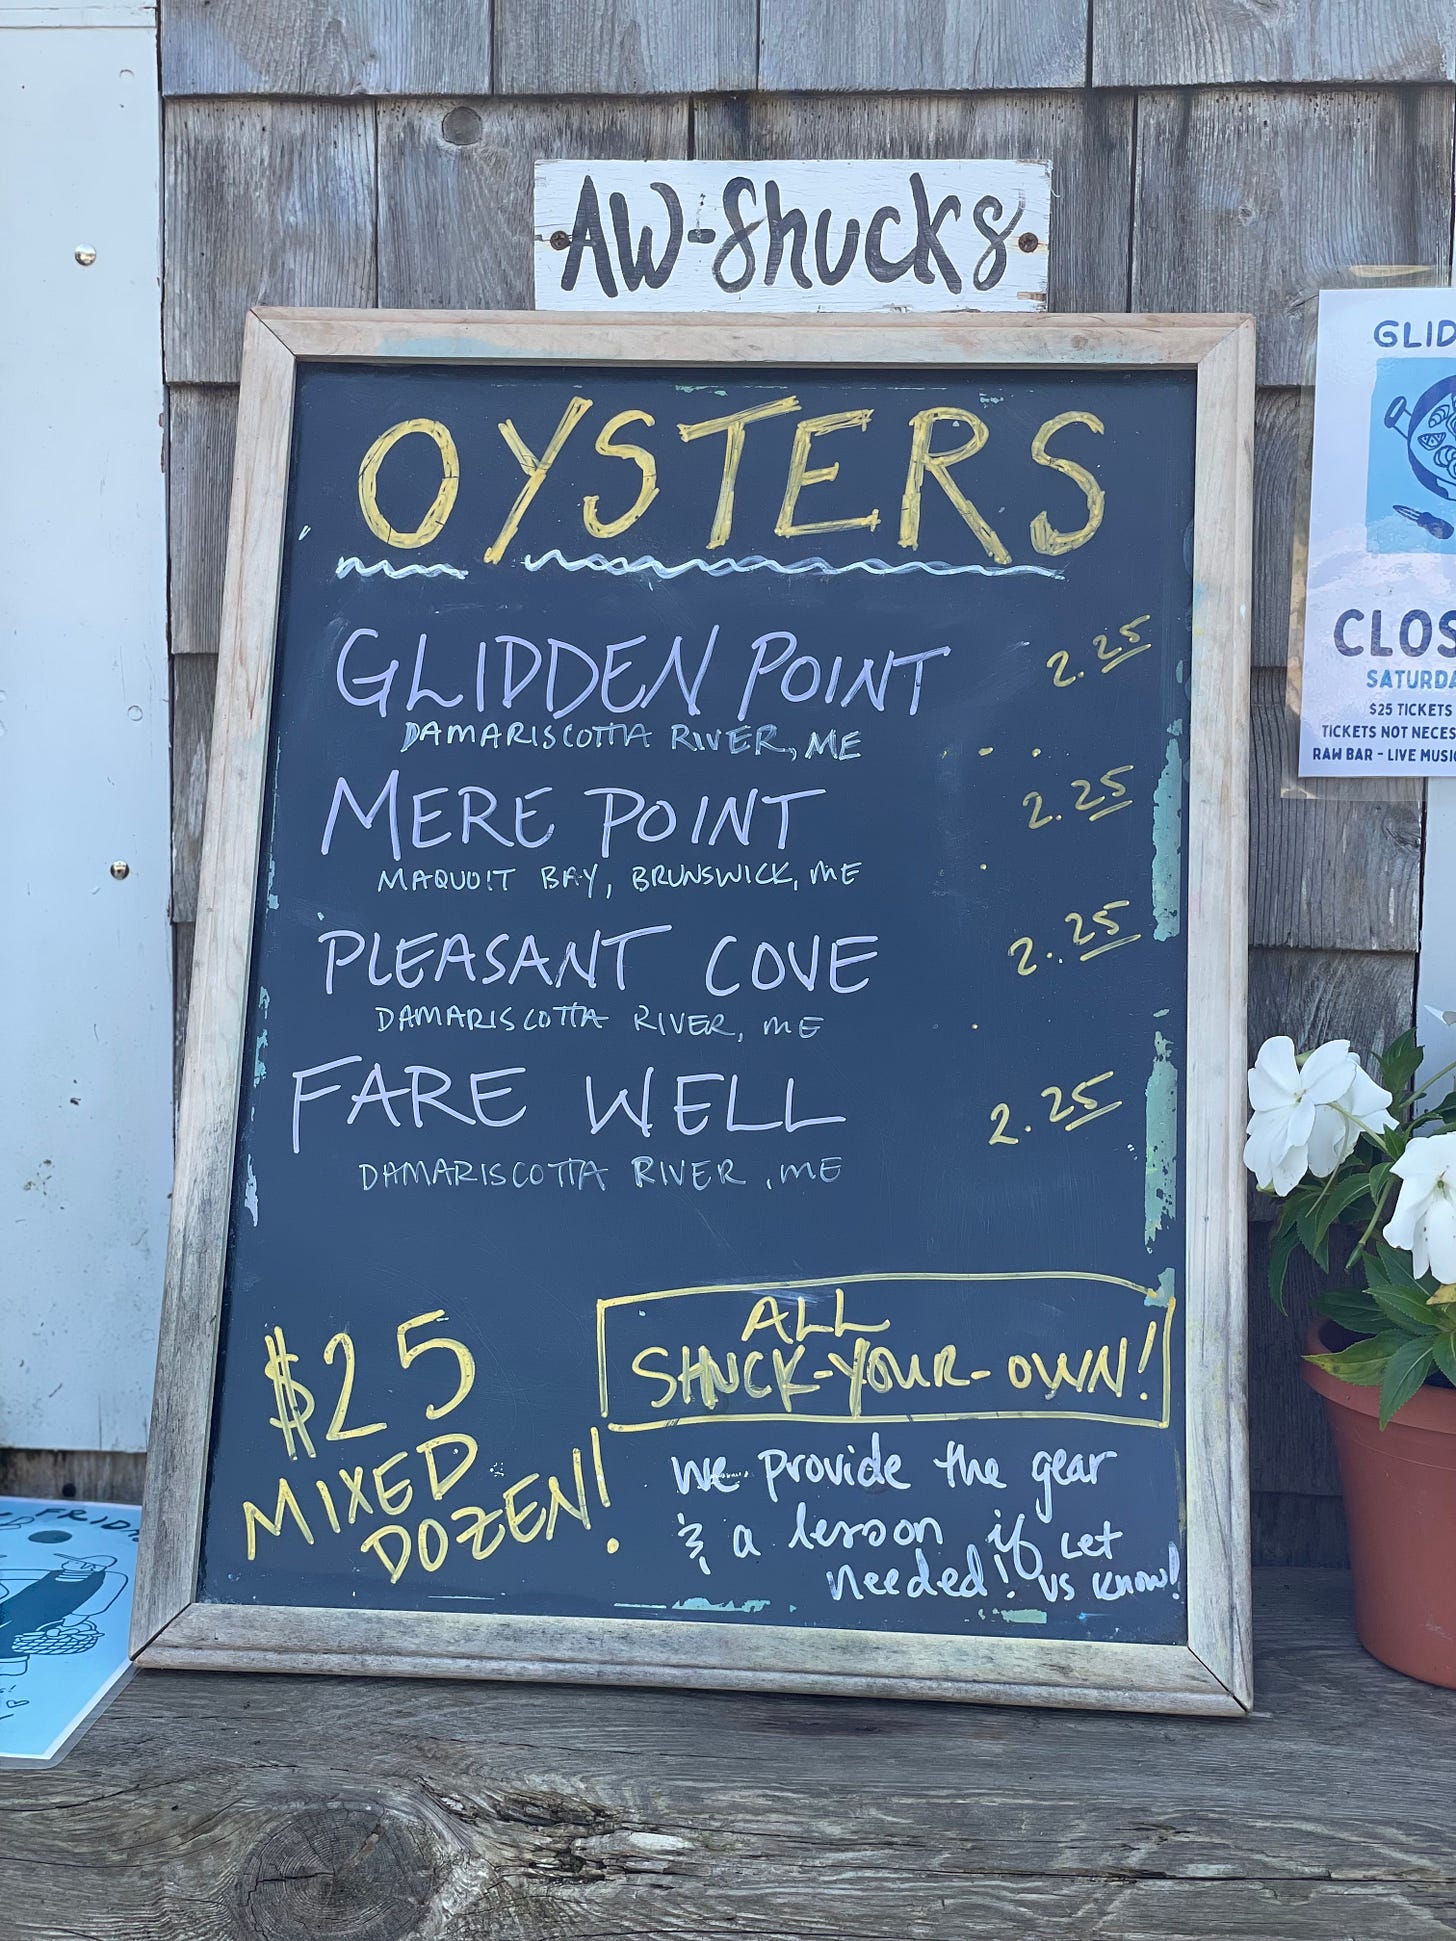 AW-Shucks
OYSTERS
GLIDDEN POINT 2.25
DAMARISCOTTA RIVER, ME
MERE POINT 2.25
MAQUOIT BAY, BRUNSWICK, ME
PLEASANT COVE 2.25
DAMARISCOTTA RIVER, ME
FARE WELL 2.25
DAMARISCOTTA RIVER, ME
$25
MIXED
DOZEN!
ALL
SHUCK-YOUR-OWN!
We provide the gear
& a lesson if
needed! Let
us know!
GLID
CLOS
SATURDA
$25 TICKETS
TICKETS NOT NECES
RAW BAR - LIVE MUSI